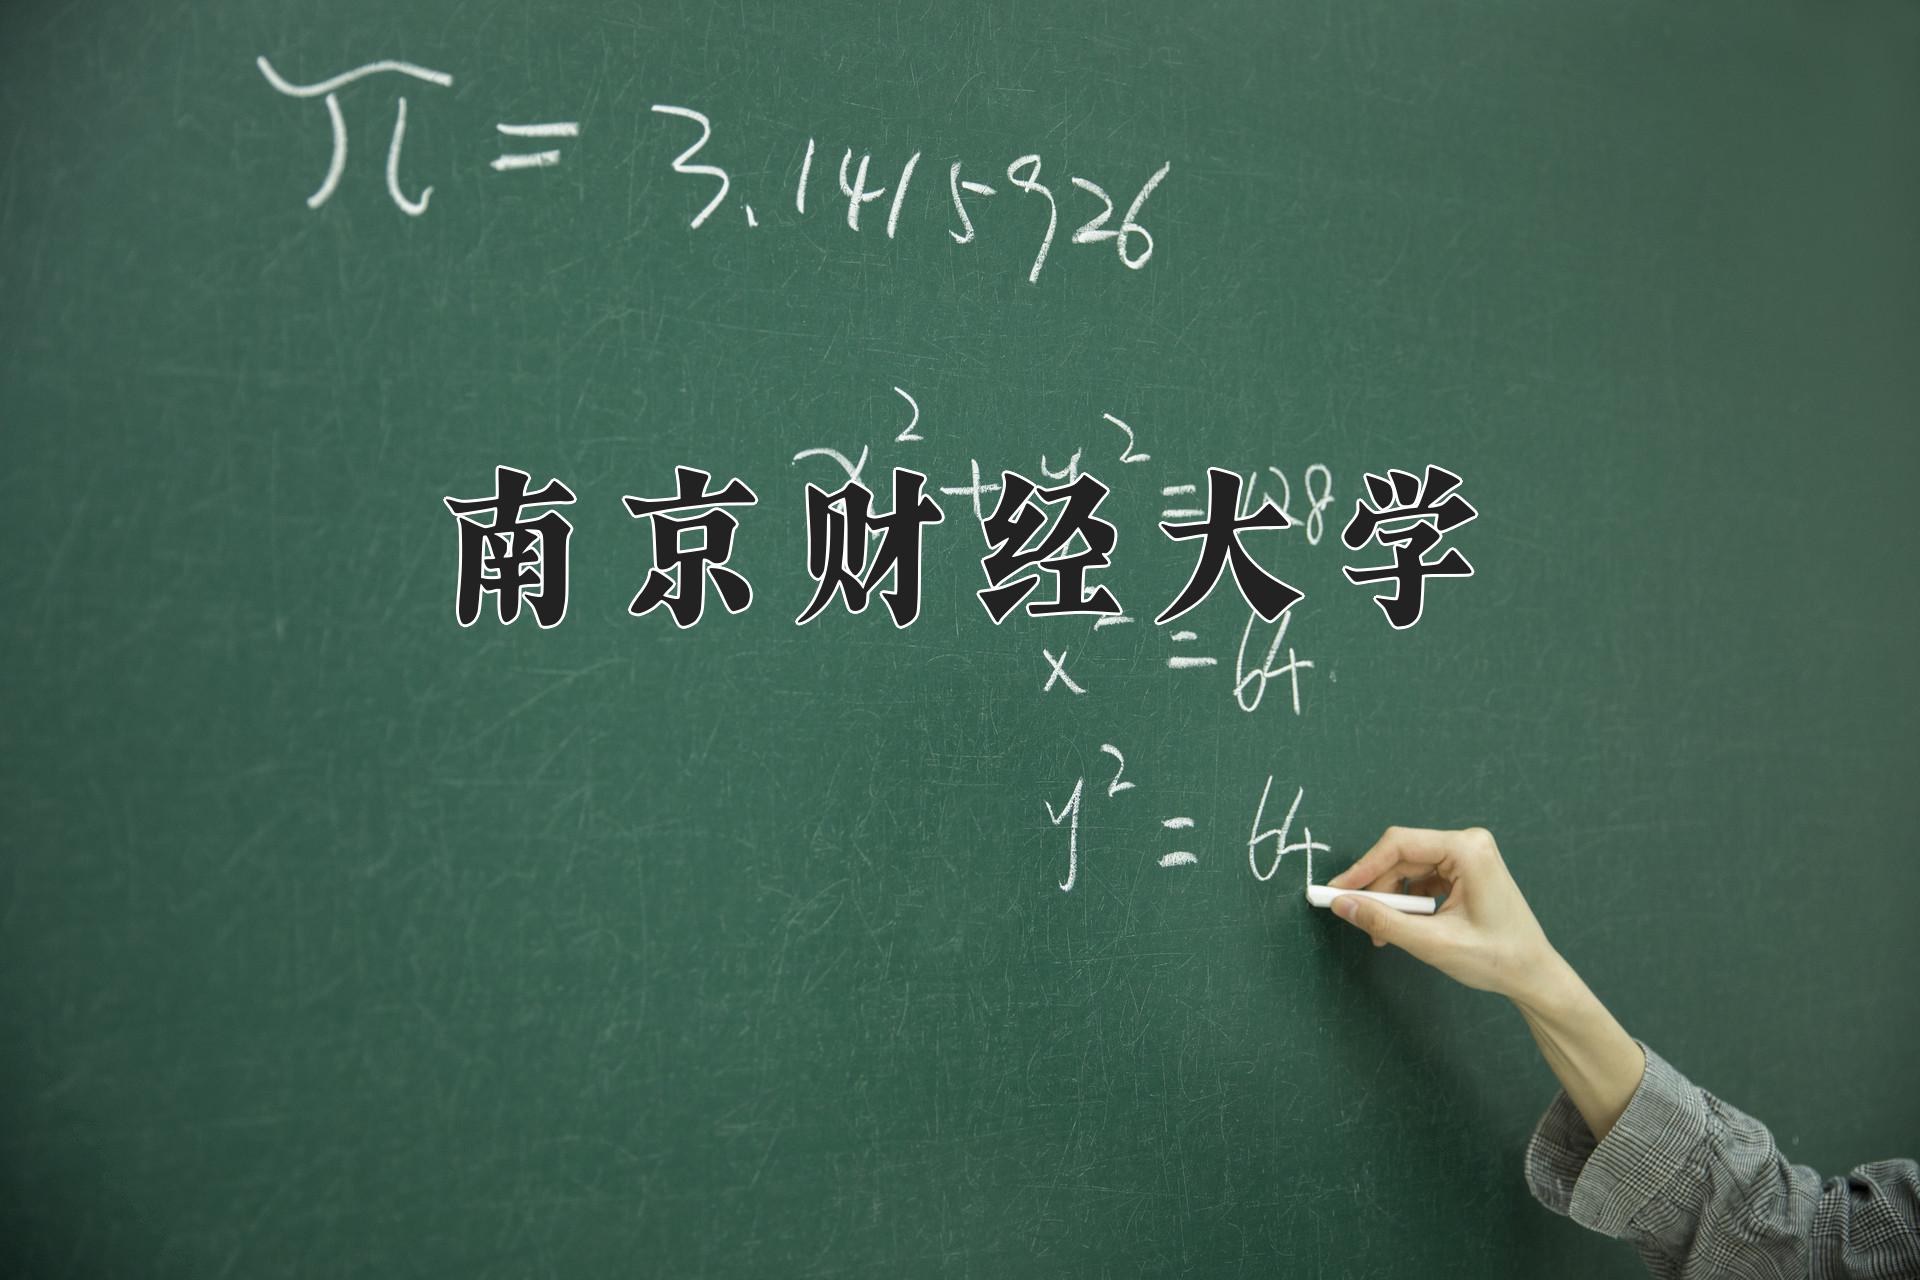 π = 3.1415926
x² + y² = 128
南京财经大学
x² = 64
y² = 64